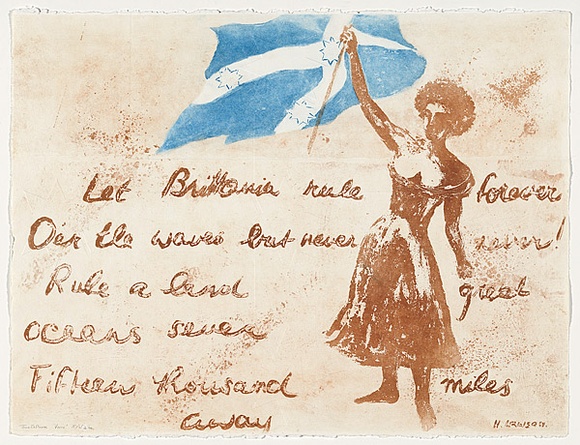 Let Brittania rule forever
O'er the waves but never never!
Rule a land great
oceans seven
Fifteen thousand miles
away
H. LAWSON.